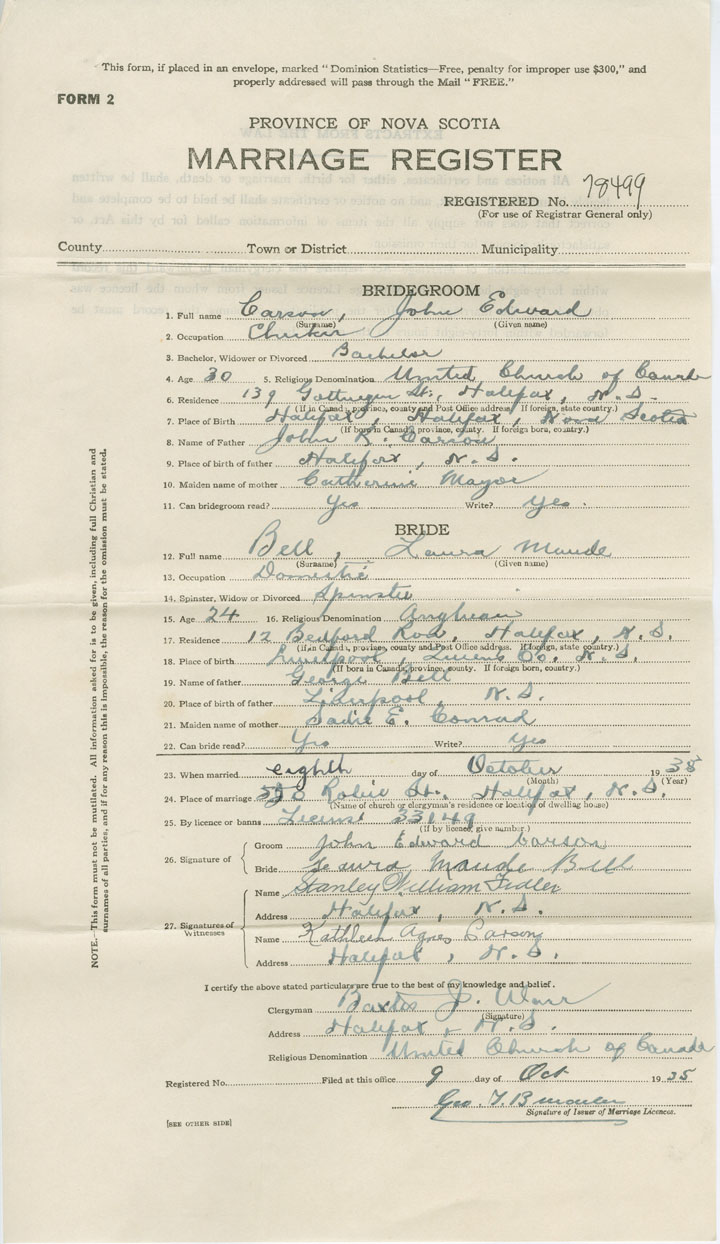 This form, if placed in an envelope, marked "Dominion Statistics—Free, penalty for improper use $300," and
properly addressed will pass through the Mail "FREE."
FORM 2
PROVINCE OF NOVA SCOTIA
MARRIAGE REGISTER
REGISTERED No. 78499
(For use of Registrar General only)
County Town or District Municipality
BRIDEGROOM
1. Full name Carson, John Edward
(Surname) (Given name)
2. Occupation
3. Bachelor, Widower or Divorced Bachelor
4. Age 30 5. Religious Denomination United Church of Canada
6. Residence 139 Gottingen St., Halifax, N.S.
(If in Canada, province, county and Post Office address. If foreign, state country.)
7. Place of Birth Halifax, Halifax, Nova Scotia
(If born in Canada, province, county. If foreign born, country.)
8. Name of Father John R. Carson
9. Place of birth of father Halifax, N.S.
10. Maiden name of mother Catherine Mayor
11. Can bridegroom read? Yes Write? Yes.
BRIDE
12. Full name Bell, Laura Maude
(Surname) (Given name)
13. Occupation Domestic
14. Spinster, Widow or Divorced Spinster
15. Age 24 16. Religious Denomination Anglican
17. Residence 12 Bedford Row, Halifax, N.S.
(If in Canada, province, county and Post Office address. If foreign, state country.)
18. Place of birth Liverpool, Queens Co. N.S.
(If born in Canada, province, county. If foreign born, country.)
19. Name of father George Bell
20. Place of birth of father Liverpool, N.S.
21. Maiden name of mother Sadie E. Conrad
22. Can bride read? Yes Write? Yes
23. When married eighth day of October 1935
(Month) (Year)
24. Place of marriage Robie St. Halifax, N.S.
(Name of church or clergyman's residence or location of dwelling house)
25. By licence or banns License 33149
(If by licence, give number.)
26. Signature of
Groom John Edward Carson
Bride Laura Maude Bell
27. Signatures of Witnesses
Name Stanley William Fidler
Address Halifax, N.S.
Name Kathleen Agnes Carson
Address Halifax, N.S.
I certify the above stated particulars are true to the best of my knowledge and belief.
Clergyman J.
(Signature)
Address Halifax, N.S.
Religious Denomination United Church of Canada
Registered No. Filed at this office 9 day of Oct 1935
Geo.
Signature of Issuer of Marriage Licences.
[SEE OTHER SIDE]
NOTE.—This form must not be mutilated. All information asked for is to be given, including full Christian and
surnames of all parties, and if for any reason this is impossible, the reason for the omission must be stated.